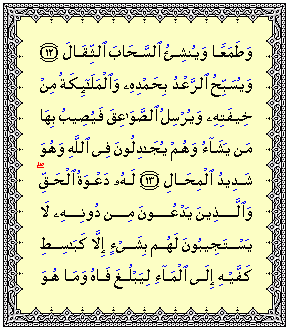 وَطَمَعًا وَيُنشِئُ ٱلسَّحَابَ ٱلثِّقَالَ ١٢
وَيُسَبِّحُ ٱلرَّعْدُ بِحَمْدِهِۦ وَٱلْمَلَٰٓئِكَةُ مِنْ
خِيفَتِهِۦ وَيُرْسِلُ ٱلصَّوَٰعِقَ فَيُصِيبُ بِهَا
مَن يَشَآءُ وَهُمْ يُجَٰدِلُونَ فِى ٱللَّهِ وَهُوَ
شَدِيدُ ٱلْمِحَالِ ١٣ لَهُۥ دَعْوَةُ ٱلْحَقِّ
وَٱلَّذِينَ يَدْعُونَ مِن دُونِهِۦ لَا
يَسْتَجِيبُونَ لَهُم بِشَىْءٍ إِلَّا كَبَٰسِطِ
كَفَّيْهِ إِلَى ٱلْمَآءِ لِيَبْلُغَ فَاهُ وَمَا هُوَ